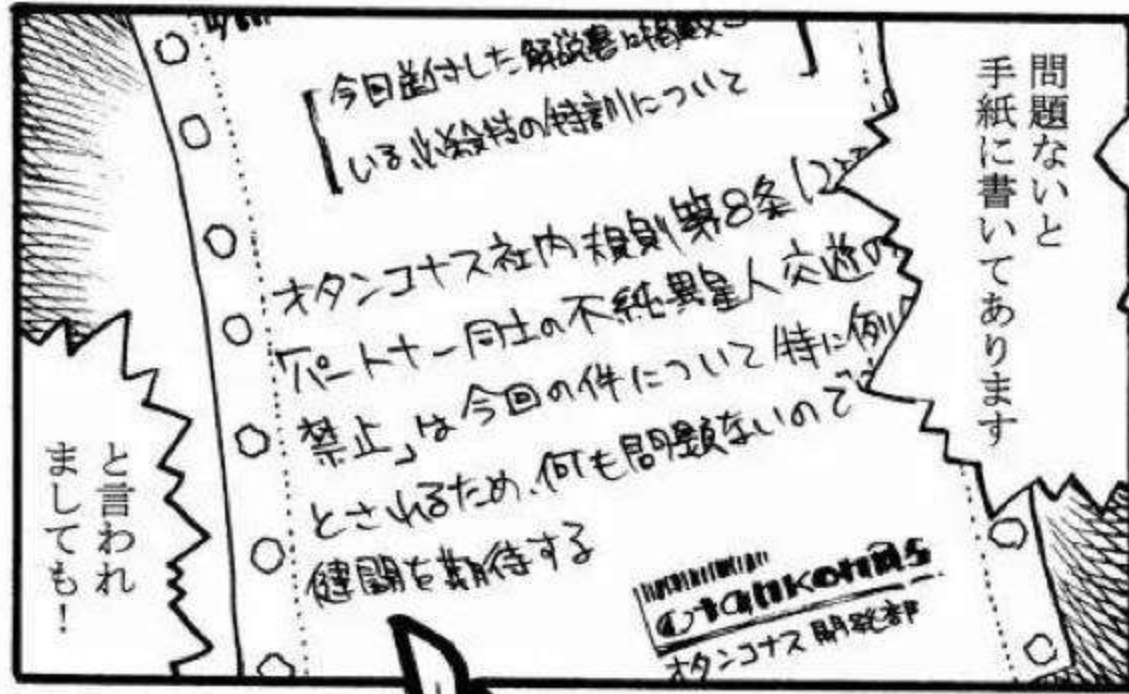 問題ないと
手紙に書いてあります
今回送付した解説書に掲載さ
いる必殺技の特訓について
オタンコナス社内規則第8条に
「パートナー同士の不純異星人交遊の
禁止」は今回の件について特に例
とされるため、何も問題ないので
健闘を期待する
Otankonas
オタンコナス開発部
と言われ
ましても！